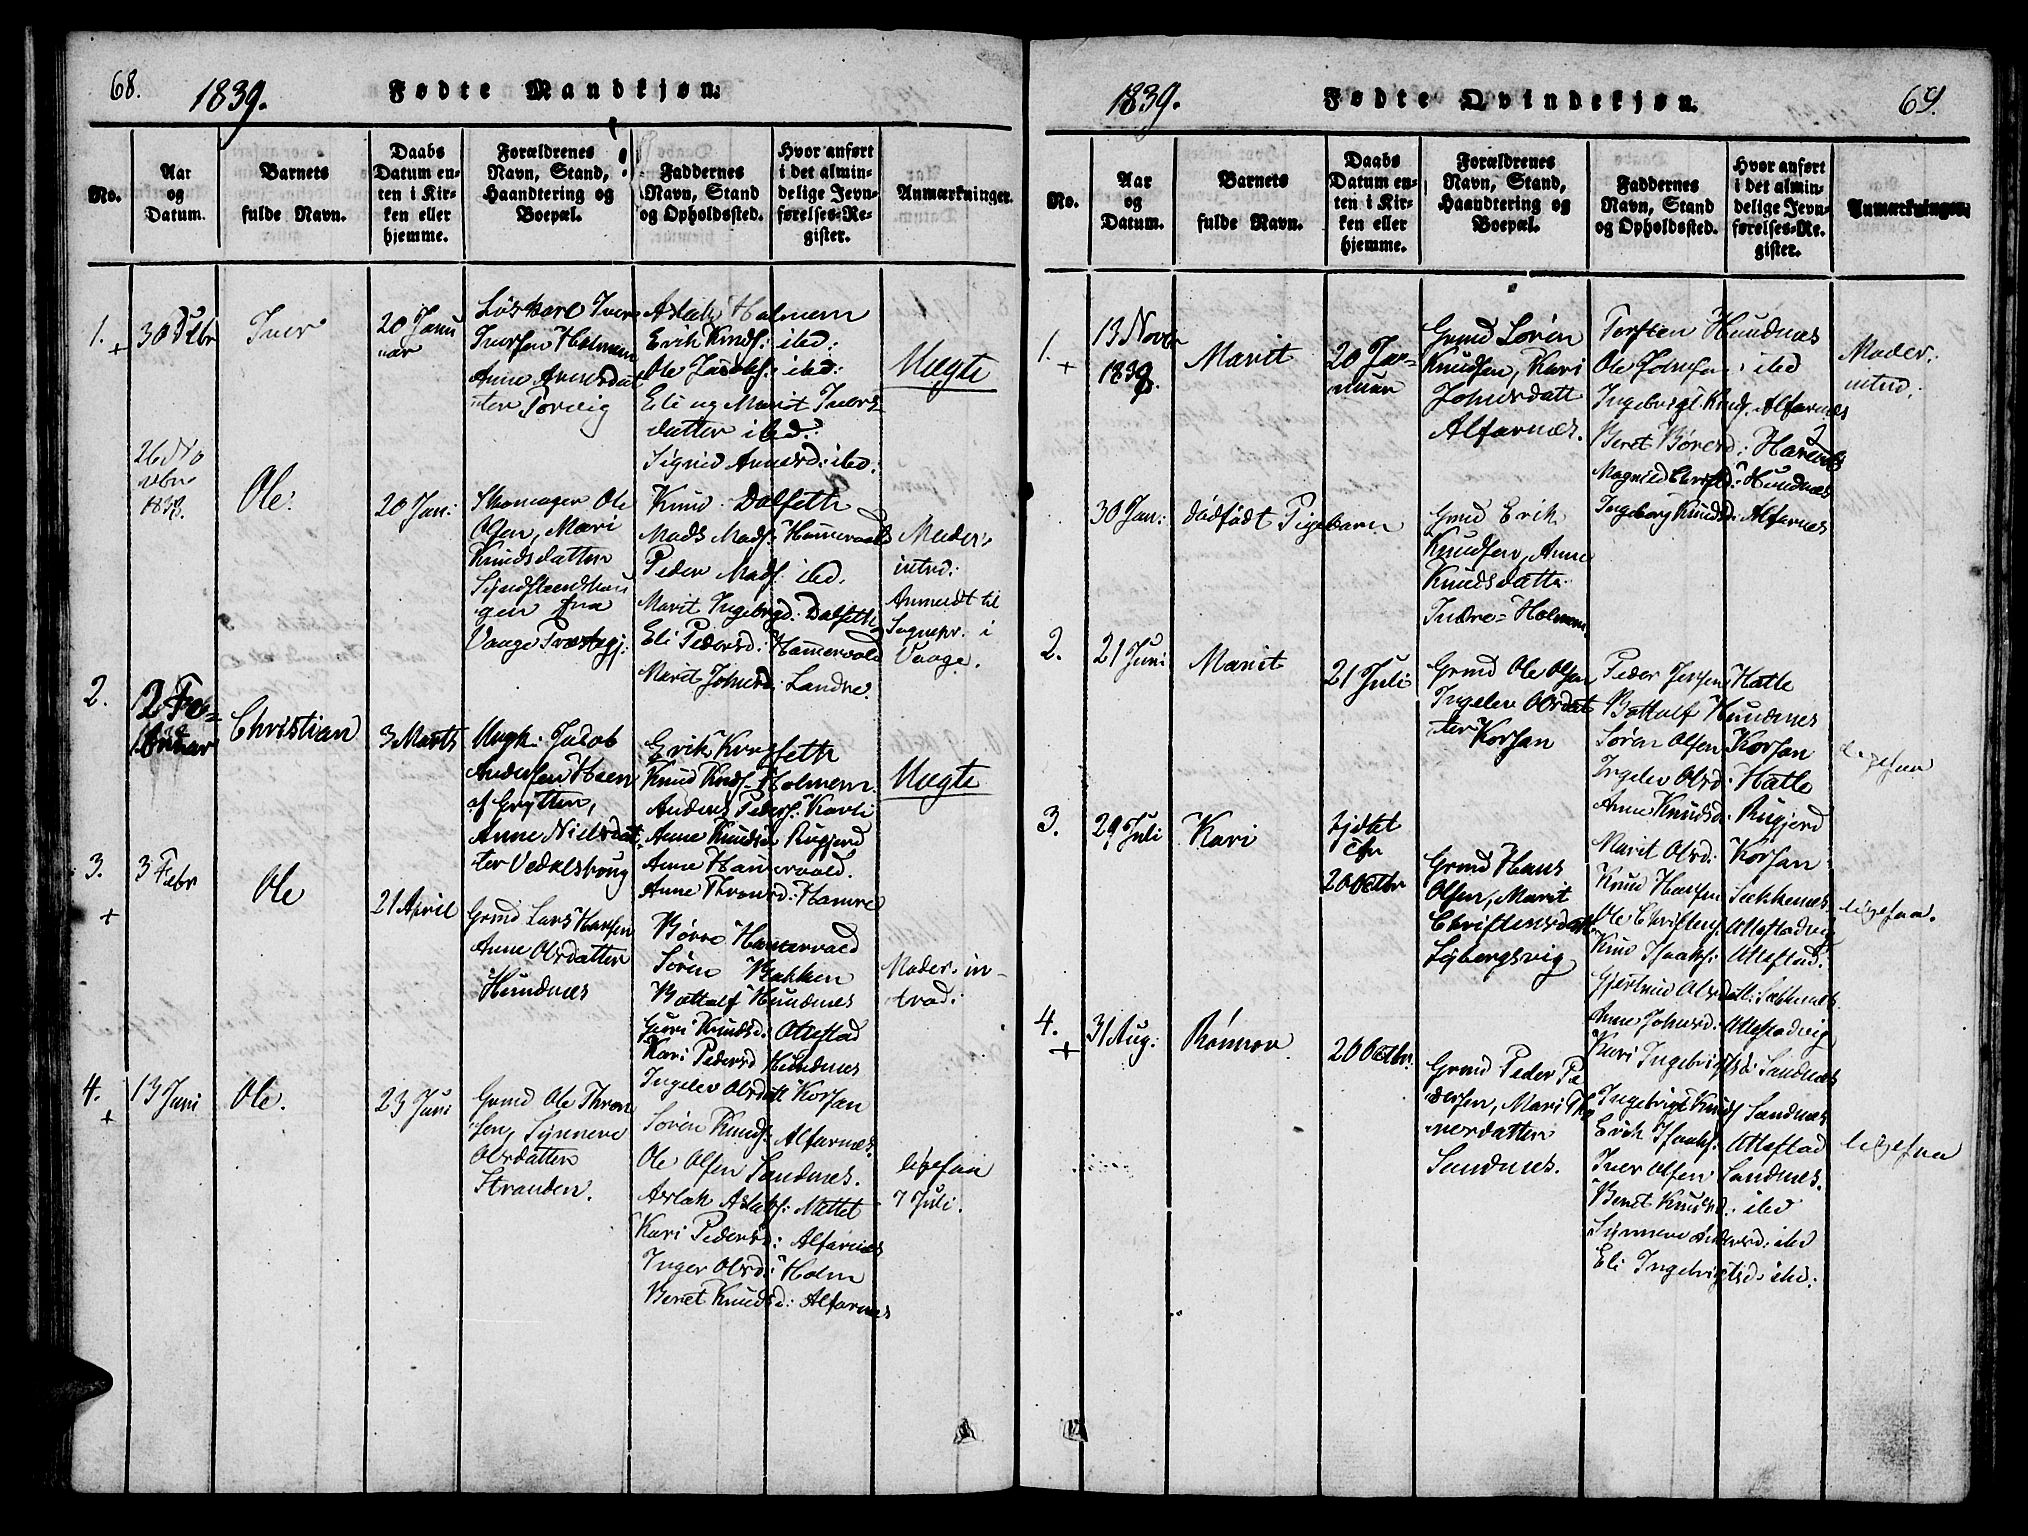 68.
1839.
Fødte Mandkjøn.
No.
Aar
og
Datum.
Barnets
fulde Navn.
Daabs
Datum en-
ten i Kir-
ken eller
hjemme.
Forældrenes
Navn, Stand,
Haandtering og
Boepæl.
Faddernes
Navn, Stand
og Opholdssted.
Hvor anført
i det almin-
delige Jevn-
førelses-Re-
gister.
Anmærkninger.
1.
+
30 Febr
Iver
20 Janu
ar
Løskarl Iver
Iversen Holmem
Anne Arnesdat
ter Torvig
Aslak Holmem
Erik Knuds: ibd:
Ole Jacobs: ibd:
Eli og Marit Ivers
datter ibd:
Sigrid Arnesd: ibd:
Uægte
26 No
vbr
1838.
Ole:
20 Jan:
Skomager Ole
Olsen, Mari
Knudsdatter
fra
Vaage Præstegj:
Knud Dalseth
Mads Mads: Hammervold
Peder Mads: ibd.
Marit Ingebrgd: Dalseth
Eli Pedersd: Hammervold
Marit Johnsd: Landre
Moder
introd:
Anmeldt til
Sognepr. i
Vaage.
2.
2 Fe-
bruar
Christian
3 Marts
Ungk: Jacob
Andersen Hoem
af Grytten,
Anne Nielsdat
ter
Erik
Knud Knuds: Holmem
Anders Peders: Kavli
Anne Knudsd: Rugjerd
Anne Hammervold.
Anne Thronsd: Hamre
Uægte
3.
+
3 Febr
Ole
21 April
Grmd Lars Hansen
Anne Olsdatter
Hundnæs
Børre Hammervold
Søren Bakken
Bottolf Hundnæs
Guri Knudsd: Ottestad
Kari Pedersd Hundnæs
Ingelev Olsdatt Korsan
Moder in-
trod:
4.
+
13 Juni
Ole.
23 Juni
Grmd Ole Thron
sen, Synneve
Olsdatter
Stranden.
Søren Knuds: Alfarnæs.
Ole Olsen Sandnæs.
Aslak Aslaks: Mittet
Kari Pedersd: Alfarnæs
Inger Olsd: Holm
Beret Knudsd: Alfarnæs
ligesaa
7 Juli.
1839.
Fødte Qvindekjøn.
69.
No.
Aar
og
Datum.
Barnets
fulde Navn.
Daabs
Datum en-
ten i Kir-
ken eller
hjemme.
Forældrenes
Navn, Stand,
Haandtering og
Boepæl.
Faddernes
Navn, Stand
og Opholdssted.
Hvor anført
i det almin-
delige Jevn-
førelses-Re-
gister.
Anmærkninger.
1.
+
13 Novbr
1838.
Marit
20 Ja-
nuar
Grmd Søren
Knudsen, Kari
Johnsdatt
Alfarnæs.
Torsten Hundnæs
Ole Johnsen: ibd
Ingebrigt Knuds. Alfarnæs
Beret Børresd:
Magnild Christd: Hundnæs
Ingeborg Knudsd: Alfarnæs
Moder:
introd.
30 Jan:
dødfødt Pigebarn
Grmd Erik
Knudsen, Anne
Knudsdatter
Indre-Holmem.
2.
21 Juni
Marit
21 Juli
Grmd Ole Olsen,
Ingelev Olsdat
ter Korsan
Peder Jensen Hatle
Bottolf Hundnæs
Søren Olsen Korsan
Ingelev Olsd: Hatle
Anne Knudsd: Rugjerd
Marit Olsd: Korsan
ligesaa
3.
29 Juli
Kari
hjdbt
Chr
20 Octbr
Grmd Hans
Olsen, Marit
Christensdatt
Lybergsvig
Knud Hansen Sækkenæs
Ole Christens: Ottestadvig
Knud Isaaks: Ottestad.
Gjertrud Olsdatt: Sækkenæs
Anne Johnsd: Ottestadvig
Kari Ingebrigtsd: Sandnæs
ligesaa.
4.
+
31 Aug:
Rønnov
20 Octbr.
Grmd Peder Pe
dersen, Mari Tho
mesdatter
Sandnæs.
Ingebrigt Knuds Sandnæs
Erik Isaaks: Ottestad
Iver Olsen Sandnæs.
Beret Knudsd: ibd
Synneve Andersd: ibd
Eli Ingebrigtsd: ibd:
ligesaa